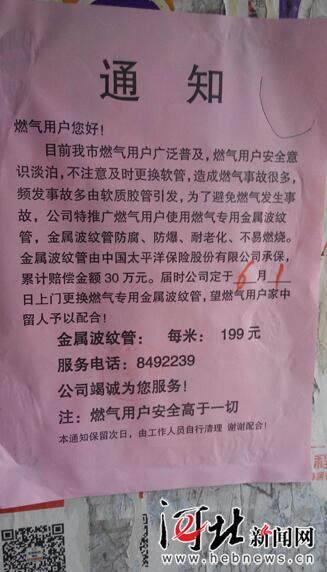 通知
燃气用户您好！
目前我市燃气用户广泛普及，燃气用户安全意
识淡泊，不注意及时更换软管，造成燃气事故很多，
频发事故多由软质胶管引发，为了避免燃气发生事
故，公司特推广燃气用户使用燃气专用金属波纹
管，金属波纹管防腐、防爆、耐老化、不易燃烧。
金属波纹管由中国太平洋保险股份有限公司承保，
累计赔偿金额30万元。届时公司定于6月1
日上门更换燃气专用金属波纹管，望燃气用户家中
留人予以配合！
金属波纹管： 每米：199元
服务电话：8492239
公司竭诚为您服务！
注：燃气用户安全高于一切
本通知保留次日，由工作人员自行清理 谢谢配合！
河北新闻网
www.hebnews.cn